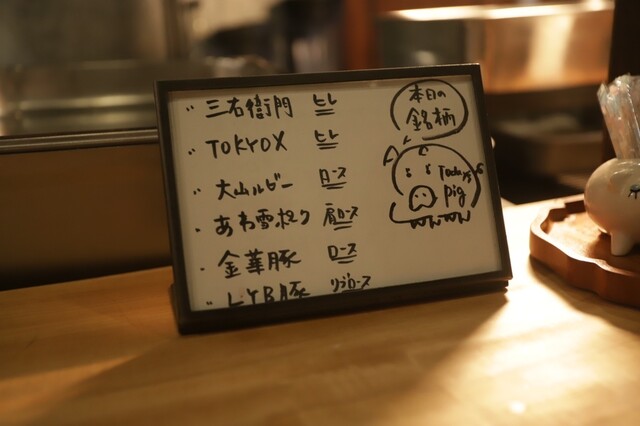 三右衛門 ヒレ
TOKYO X ヒレ
大山ルビー ロース
あわ雪ポーク 肩ロース
金華豚 ロース
LYB豚 リブロース
本日の
銘柄
Today's
pig